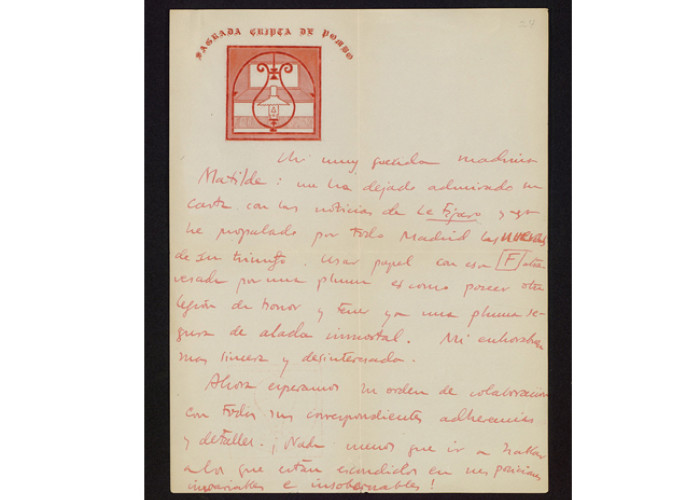 24
SAGRADA CRIPTA DE POMBO
Mi muy querida madrina
Matilde: me ha dejado admirado su
carta con las noticias de Le Figaro y ya
he propalado por toda Madrid las nuevas
de su triunfo. Usar papel con esa F atra
vesada por una pluma es como poseer otra
legión de honor y tener ya una pluma se-
gura de alada inmortal. Mi enhorabuena
mas sincera y desinteresada.
Ahora esperamos su orden de colaboración
con todas sus correspondientes adherencias
y detalles. ¡Nada menos que ir a
a los que están escondidos en sus posiciones
invariables e insobornables!